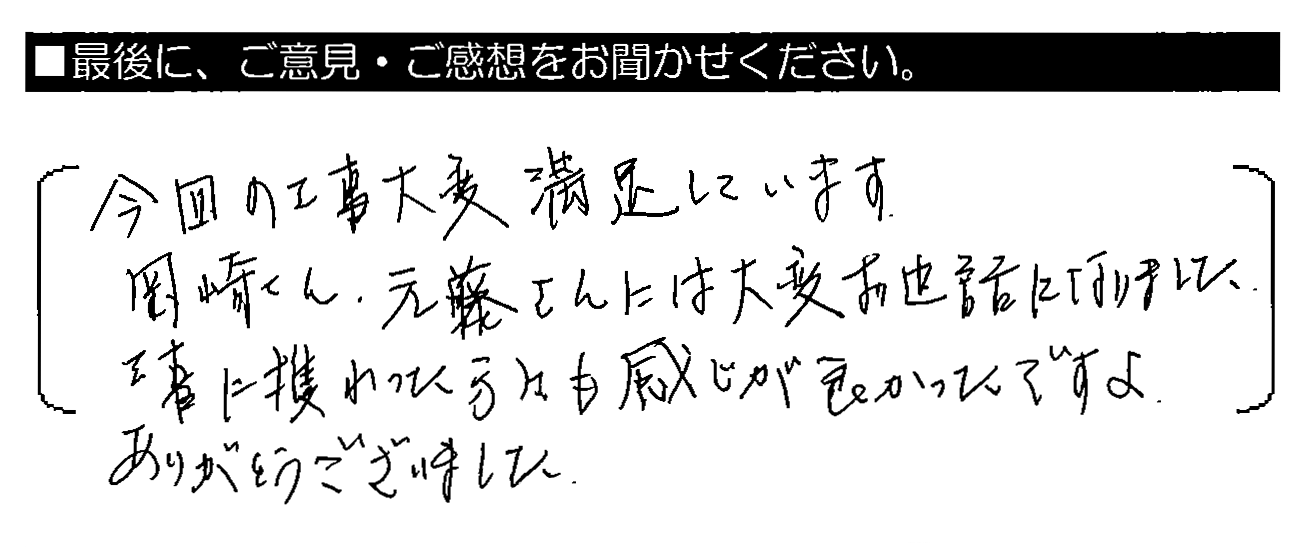 ■最後に、ご意見・ご感想をお聞かせください。
今回の工事大変満足しています.
岡崎くん.元藤さんには大変お世話になりました.
工事に携わった方々も感じが良かったですよ.
ありがとうございました.